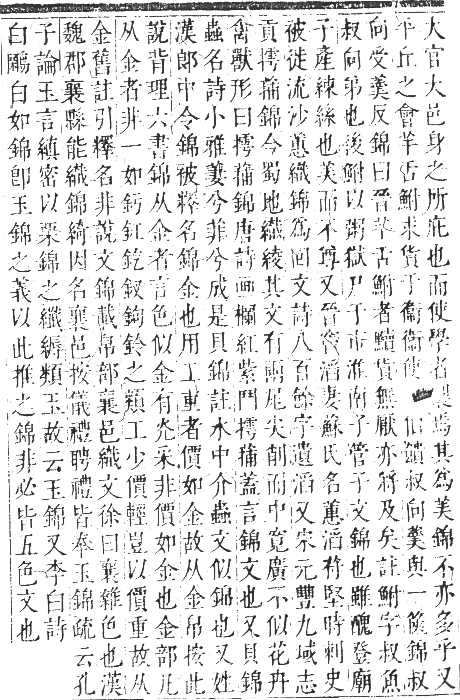 大官大邑身之所庇也而使學者製焉其爲美錦不亦多乎又
平丘之會羊舌鮒求貨于衞衞使伯饋叔向羹與一篋錦叔
向受羹反錦曰晉羊舌鮒者黷貨無厭亦將及矣註鮒字叔魚
叔向弟也後鮒以鬻獄尸于市淮南子管子文錦也雖醜登廟
子產練絲也美而不尊又晉竇滔妻蘇氏名蕙滔苻堅時刺史
被徙流沙蕙織錦爲回文詩八百餘字遺滔又宋元豐九域志
貢摴蒱錦今蜀地織綾其文有兩尾尖削而中寬廣不似花卉
禽獸形曰摴蒱錦唐詩畫欄紅紫鬥摴蒱蓋言錦文也又貝錦
蟲名詩小雅萋兮菲兮成是貝錦註水中介蟲文似錦也又姓
漢郎中令錦被釋名錦金也用工重者價如金故从金帛按此
說背理六書錦从金者言色似金有光采非價如金也金部凡
从金者非一如鈣釭釳釵鉤鈴之類工少價輕豈以價重故从
金舊註引釋名非說文錦載帛部襄邑織文徐曰襄雜色也漢
魏郡襄縣能織錦綺因名襄邑按儀禮聘禮皆奉玉錦疏云孔
子論玉言縝密以栗錦之纖縟類玉故云玉錦又李白詩
白鷴白如錦卽玉錦之義以此推之錦非必皆五色文也